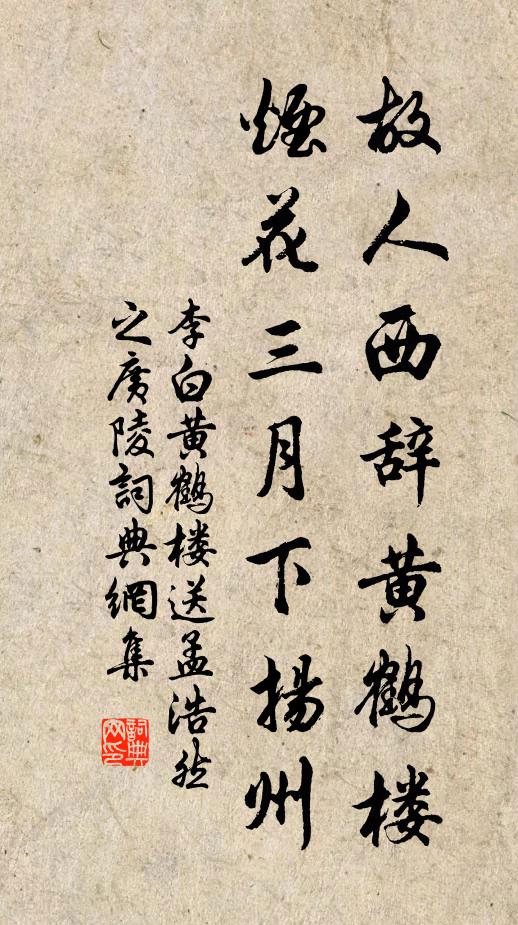 故人西辞黄鹤楼
煙花三月下揚州
李白黄鹤楼送孟浩然
之廣陵詞典網集
詞典
网印